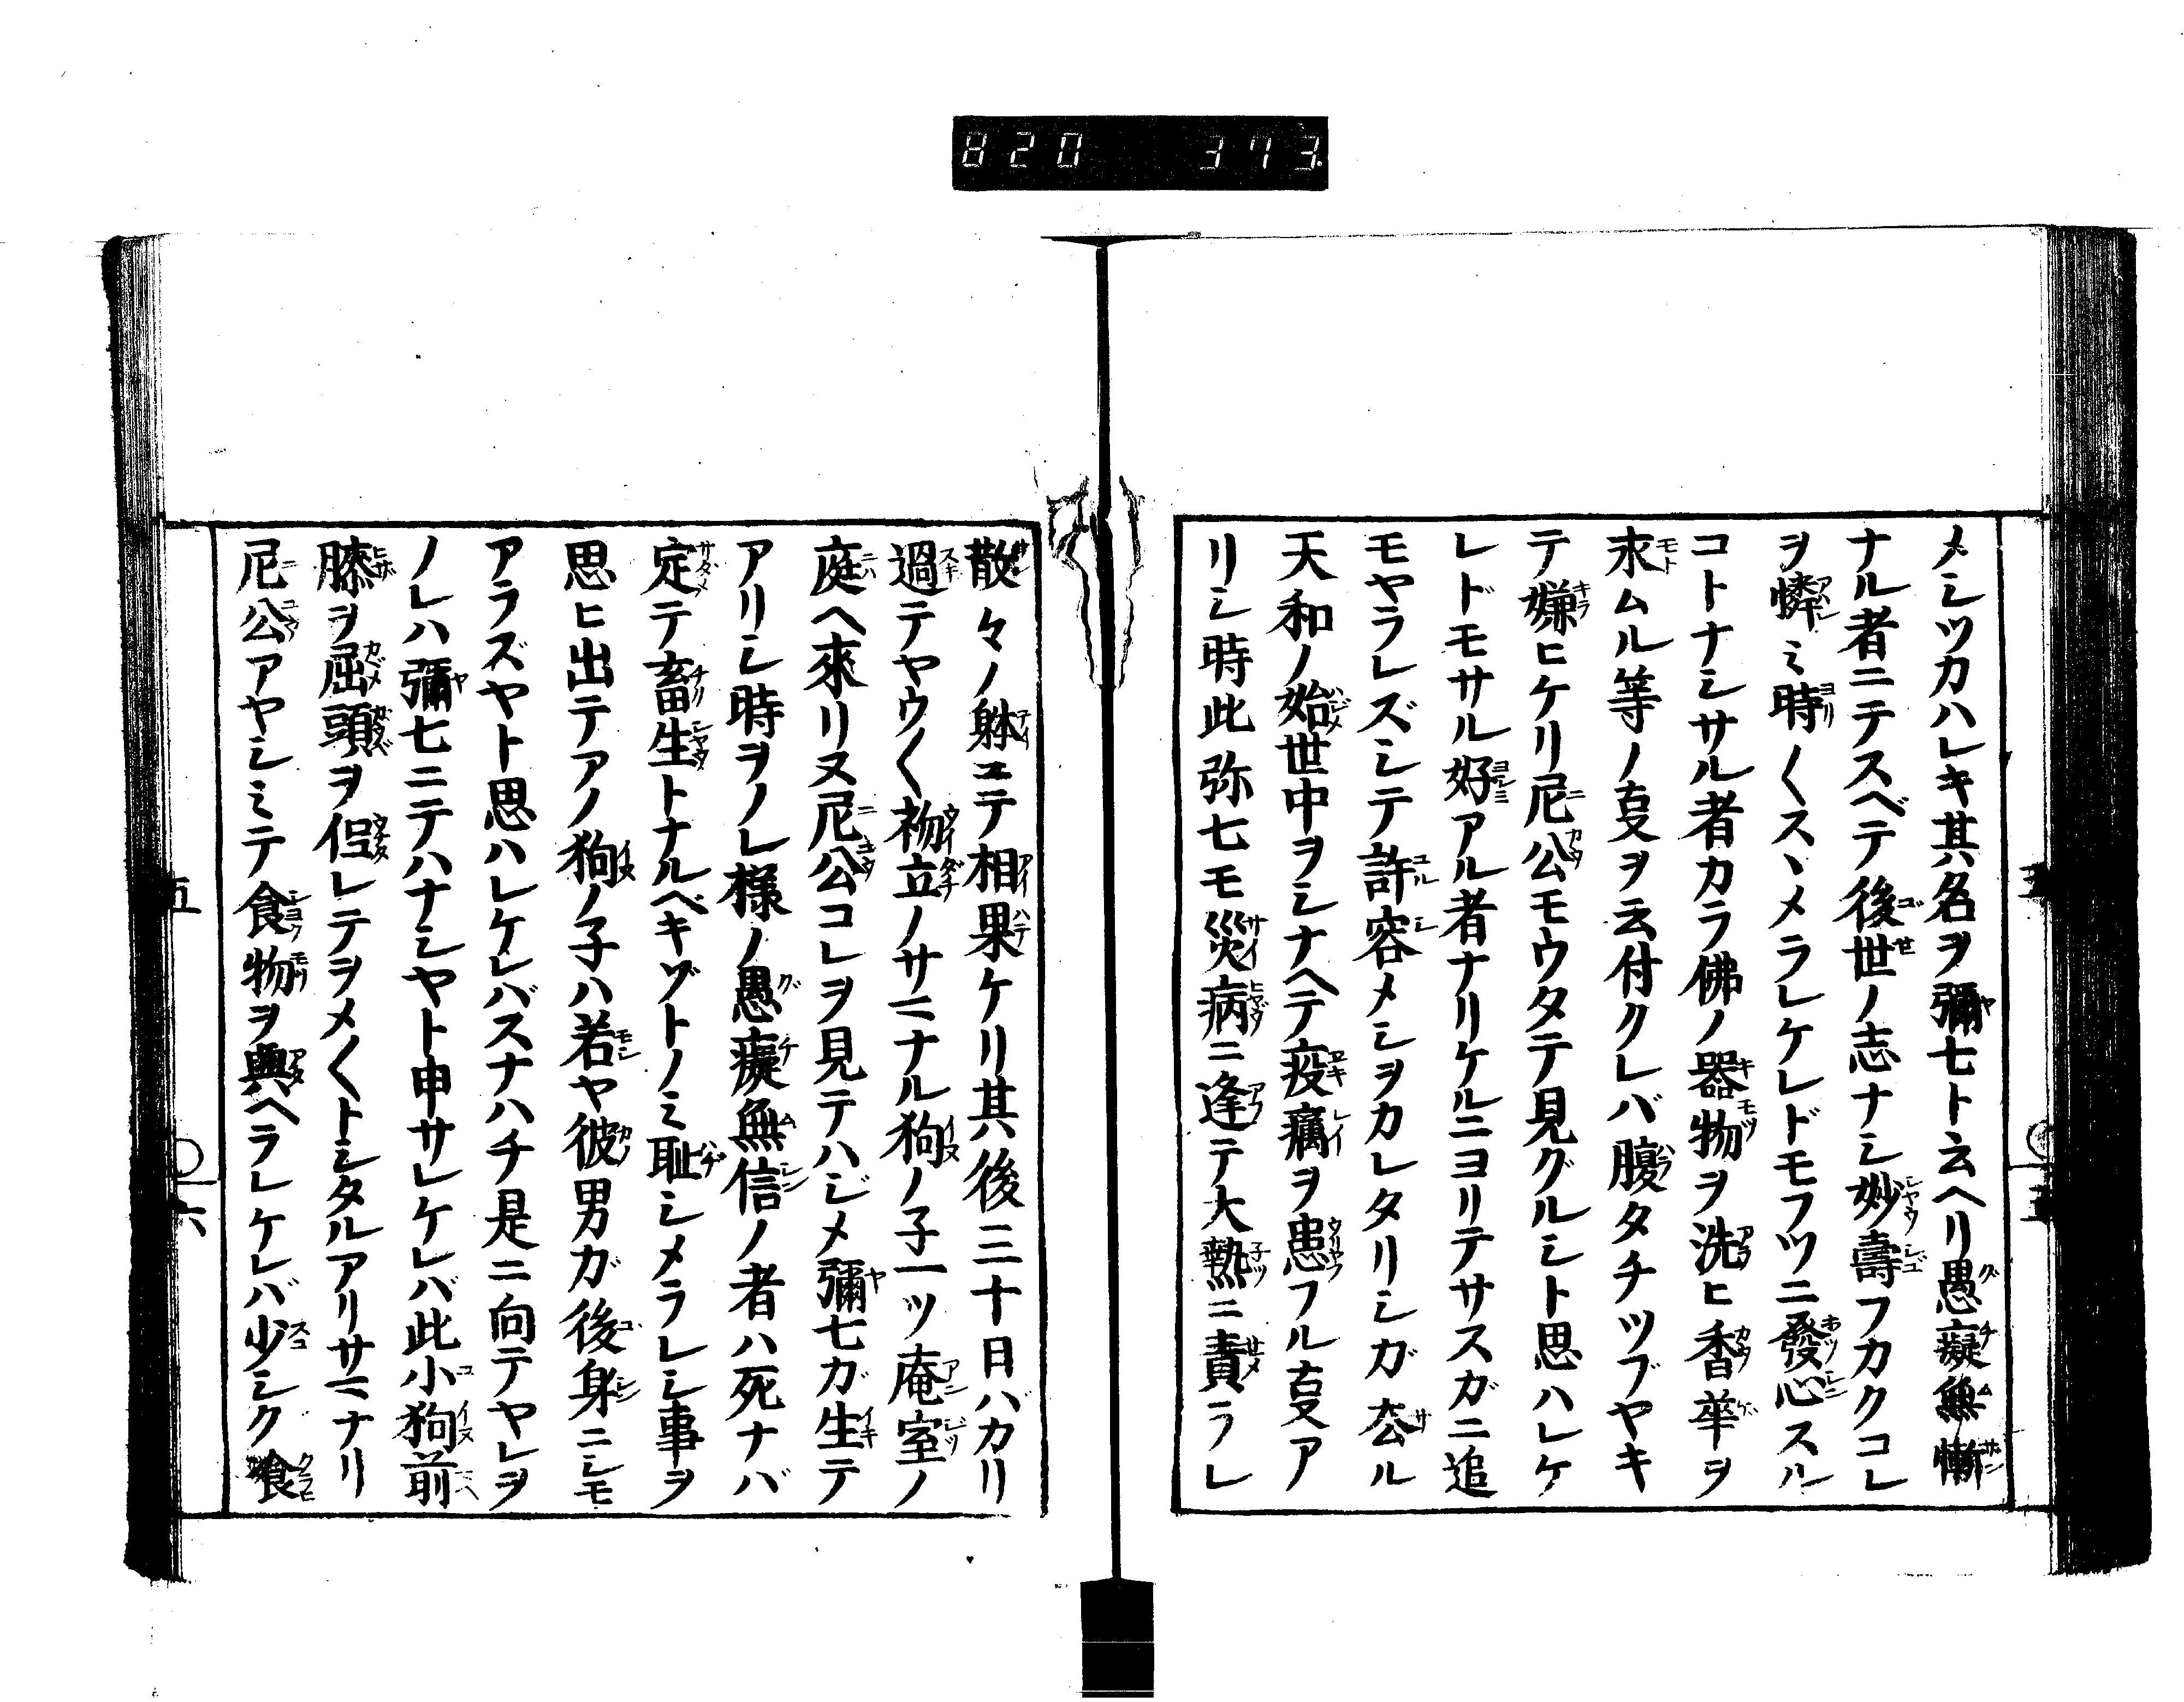 820 373
メシツカハレキ其名ヲ彌七ト云ヘリ愚癡無慚
ナル者ニテスベテ後世ノ志ナシ妙壽フカクコレ
ヲ憐ミ時〱スヽメラレケレドモフツニ發心スル
コトナシサル者カラ佛ノ器物ヲ洗ヒ香華ヲ
求ムル等ノ叓ヲ云付クレバ腹タチツブヤキ
テ嫌ヒケリ尼公モウタテ見グルシト思ハレケ
レドモサル好アル者ナリケルニヨリテサスガニ追
モヤラレズシテ許容メシヲカレタリシガ厺ル
天和ノ始世中ヲシナヘテ疫癘ヲ患フル叓ア
リシ時此弥七モ災病ニ逢テ大熱ニ責ラレ
散々ノ躰ニテ相果ケリ其後三十日バカリ
過テヤウ〱物立ノサマナル狗ノ子一ツ庵室ノ
庭ヘ來リヌ尼公コレヲ見テハジメ彌七ガ生テ
アリシ時ヲノレ様ノ愚癡無信ノ者ハ死ナバ
定テ畜生トナルベキゾトノミ恥シメラレシ事ヲ
思ヒ出テアノ狗ノ子ハ若ヤ彼男ガ後身ニシモ
アラズヤト思ハレケレバスナハチ是ニ向テヤレヲ
ノレハ彌七ニテハナシヤト申サレケレバ此小狗前
膝ヲ屈頭ヲ低レテヲメ〱トシタルアリサマナリ
尼公アヤシミテ食物ヲ與ヘラレケレバ少シク飡
五
〇六